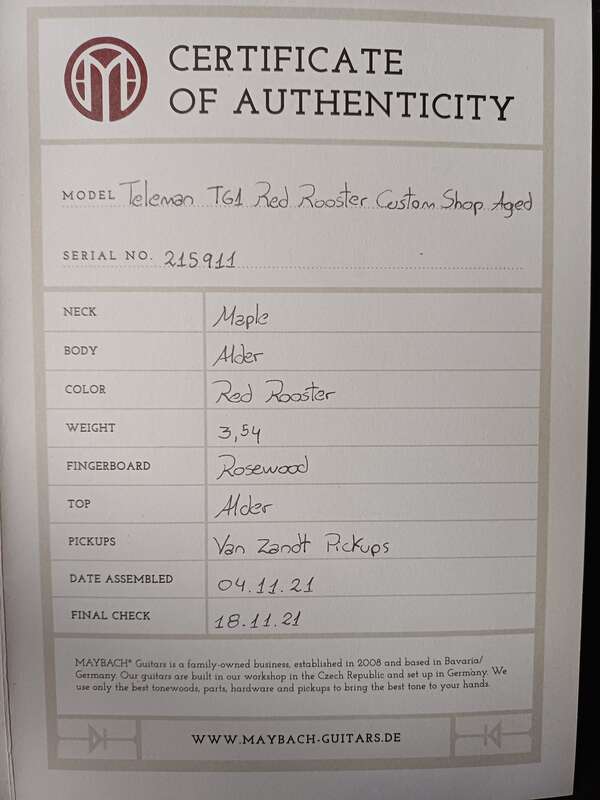 CERTIFICATE
OF AUTHENTICITY
MODEL Teleman T61 Red Rooster Custom Shop Aged
SERIAL NO. 215911
NECK Maple
BODY Alder
COLOR Red Rooster
WEIGHT 3,54
FINGERBOARD Rosewood
TOP Alder
PICKUPS Van Zandt Pickups
DATE ASSEMBLED 04.11.21
FINAL CHECK 18.11.21
MAYBACH® Guitars is a family-owned business, established in 2008 and based in Bavaria/
Germany. Our guitars are built in our workshop in the Czech Republic and set up in Germany. We
use only the best tonewoods, parts, hardware and pickups to bring the best tone to your hands.
WWW.MAYBACH-GUITARS.DE